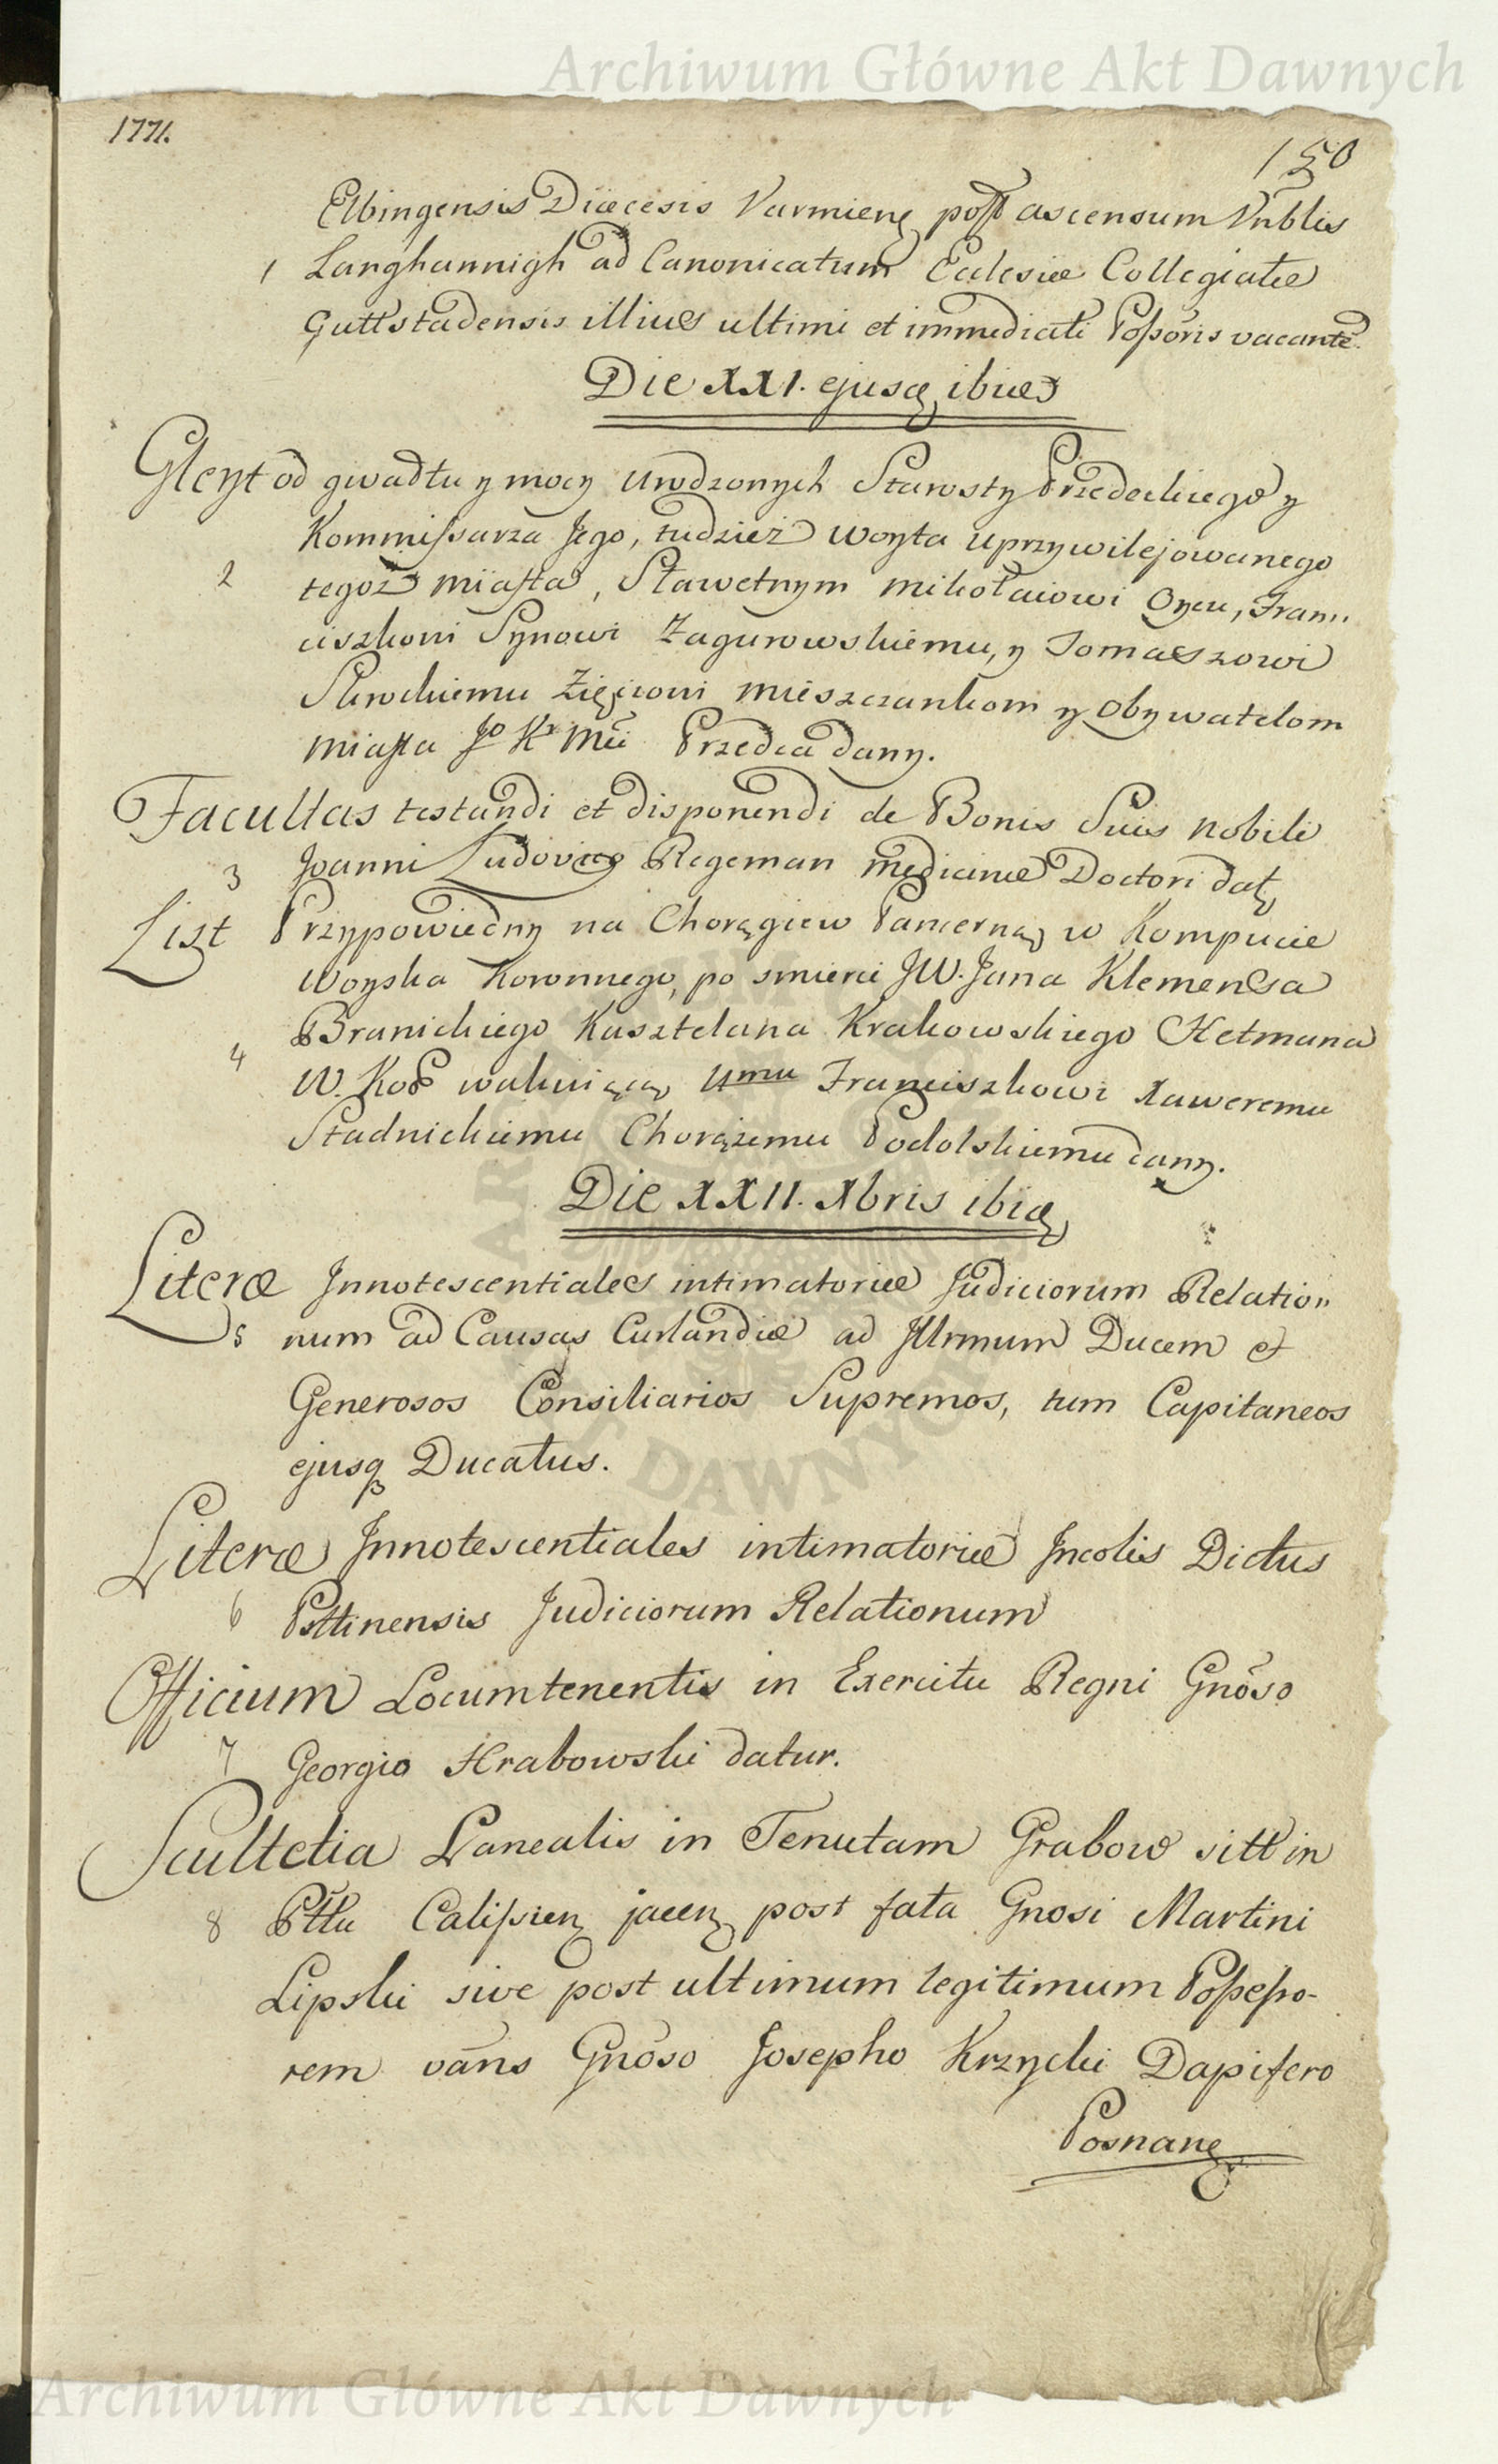 Archiwum Główne Akt Dawnych
1771.
150
Elbingensis Diæcesis Varmienę post ascensum Vnblis
1 Langhannigh ad Canonicatum Ecclesiæ Collegiatæ
Guttstadensis illius ultimi et immediati Poſsoris vacante.
Die XXI. ejusq, ibi
Gleyt od gwałtu y mocy Urodzonych Starosty Przedeckiego y
Kommiſsarza Jego, tudzież Woyta uprzywilejowanego
2 tegoż Miasta, Sławetnym Mikołaiowi Oycu, Fran„
ciszkowi Synowi Zagurowskiemu, y Tomaszowi
Zięciowi Mieszczankom y Obywatelom
Miasta Jo Kr Mći Przedcza dany.
Facultas testandi et disponendi de Bonis Suis Nobili
3 Joanni Ludovico Regeman Medicinæ Doctori datę
List Przypowiedny na Chorągiew Pancerną w Kompucie
Woyska Koronnego, po smierci JW. Jana Klemensa
Branickiego Kasztelana Krakowskiego Hetmana
4 W. Kor wakuiącą Umu Franciszkowi Xaweremu
Stadnickiemu Chorążemu Podolskiemu dany.
Die XXII. Xbris ibiq,
Literæ Innotescentiales intimatoriæ Judiciorum Relatio„
5 num ad Causas Curlandiæ ad Illrmum Ducem et
Generosos Consiliarios Supremos, tum Capitaneos
ejusq Ducatus.
Literæ Innotescentiales intimatoriæ Incolis Dictus
6 Pltinensis Judiciorum Relationum
Officium Locumtenentis in Exercitu Regni Gnōso
7 Georgio Hrabowski datur.
Scultetia Lanealis in Tenutam Grabow sitt in
8 Pttu Calisien jacen post fata Gnosi Martini
Lipski sive post ultimum legitimum Poſseſso-
rem vāns Gnōso Josepho Krzycki Dapifero
Posnanę
Archiwum Główne Akt Dawnych